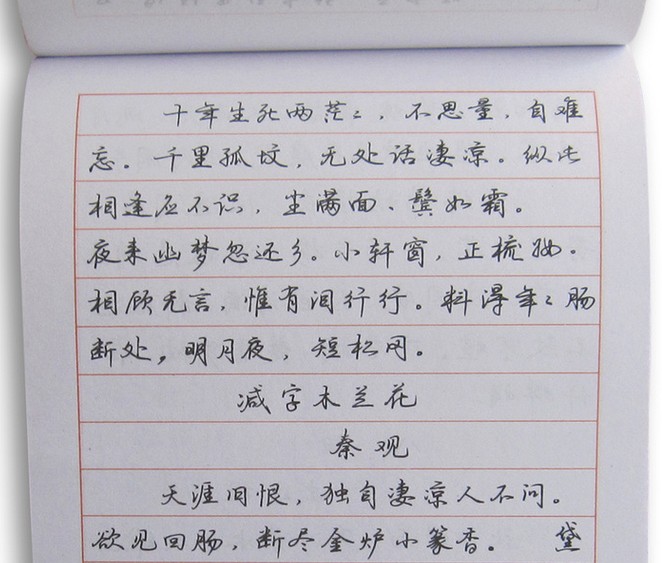 十年生死两茫々，不思量，自难
忘。千里孤坟，无处话凄凉。纵此
相逢应不识，尘满面、鬓如霜。
夜来幽梦忽还乡。小轩窗，正梳妆。
相顾无言，惟有泪行行。料得年々肠
断处，明月夜，短松冈。
减字木兰花
秦观
天涯旧恨，独自凄凉人不问。
欲见回肠，断尽金炉小篆香。 黛